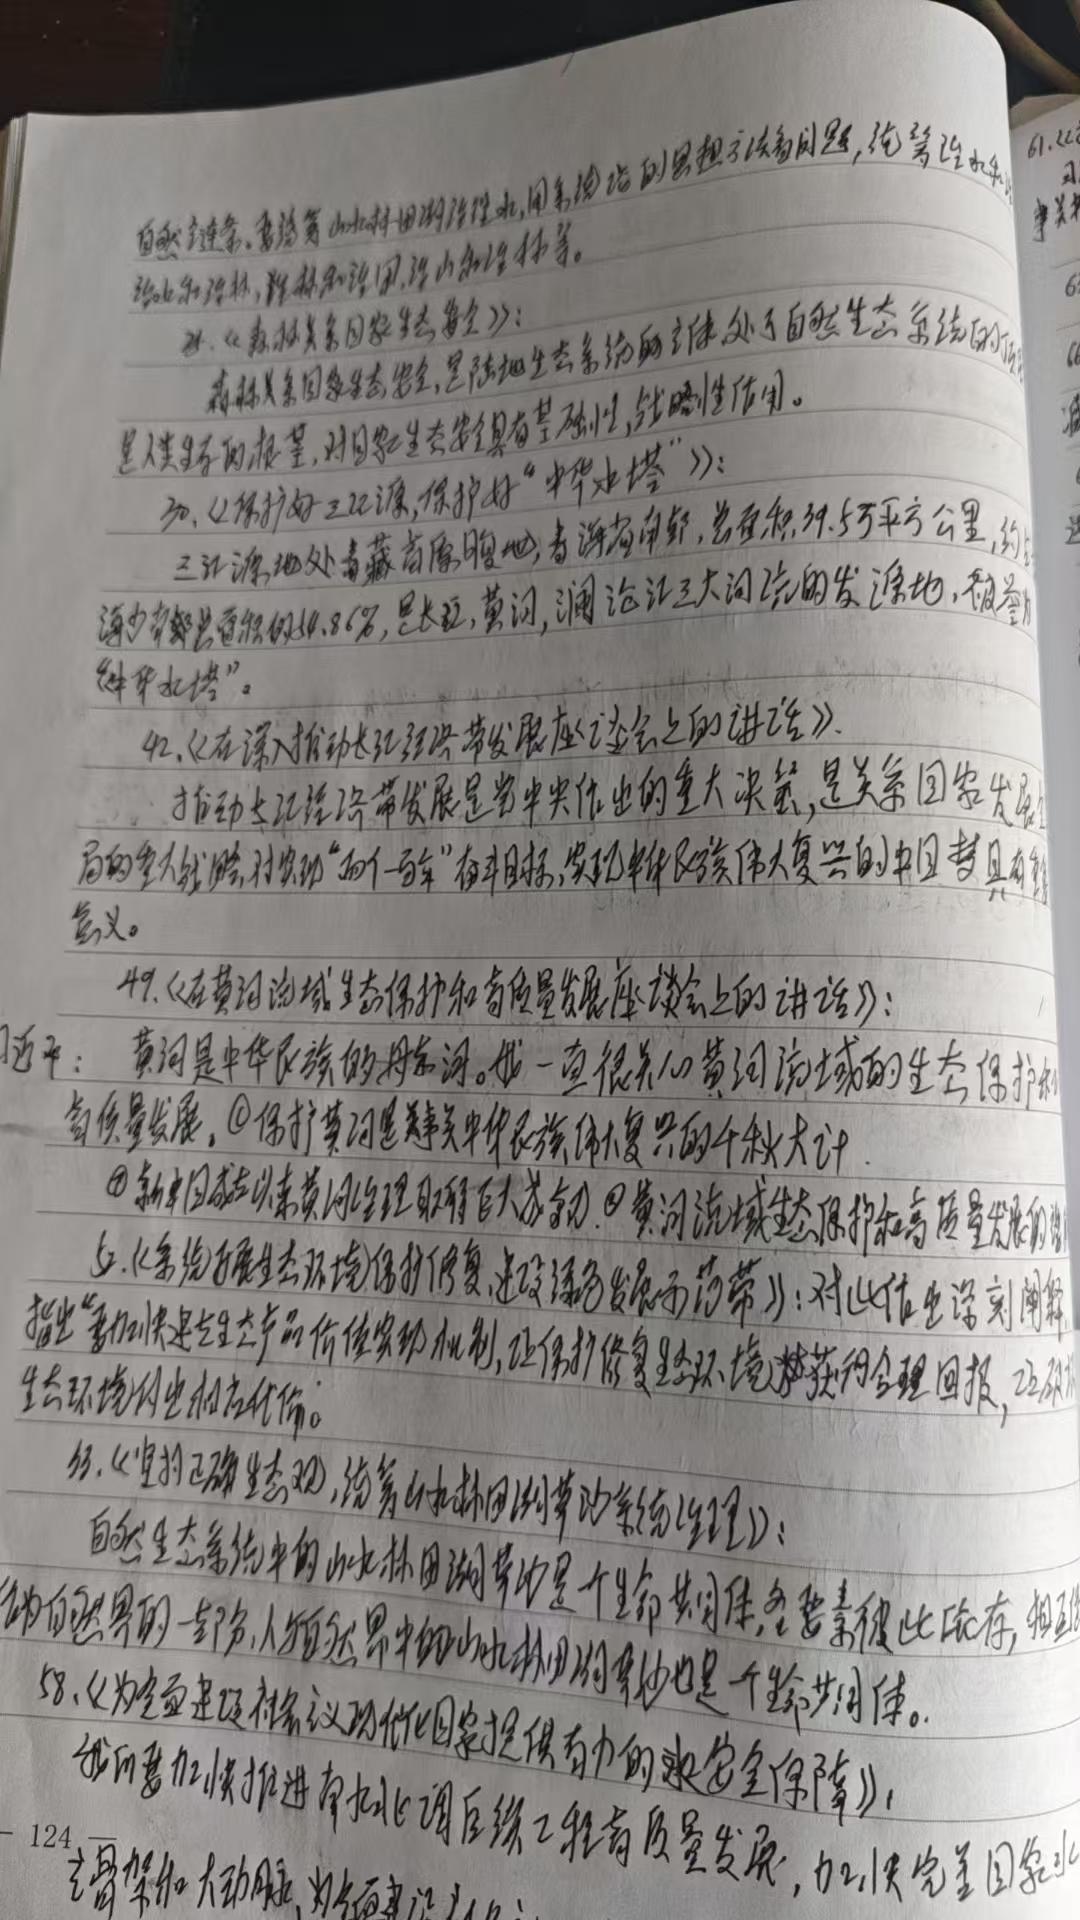 自然空连条。要统筹山水林田湖治理水,用系统论的思想方法看问题,统筹治水和治
治水和治林,治林和治田,治山和治林等。
24.《森林关系国家生态安全》:
森林关系国家生态安全,是陆地生态系统的主体处于自然生态系统的顶
是人类生存的根基,对国家生态安全具有基础性,战略性作用。
30.《保护好三江源,保护好“中华水塔”》:
三江源地处青藏高原腹地,青海省南部,总面积39.5万平方公里,约
海省总面积的54.86%,是长江,黄河,澜沧江三大河流的发源地,被誉为
“中华水塔”。
42.《在深入推动长江经济带发展座谈会上的讲话》.
推动长江经济带发展是党中央作出的重大决策,是关系国家发展全
局的重大战略,对实现“两个一百年”奋斗目标,实现中华民族伟大复兴的中国梦具有重
意义。
49.《在黄河流域生态保护和高质量发展座谈会上的讲话》:
习近平: 黄河是中华民族的母亲河。我一直很关心黄河流域的生态保护和
高质量发展。①保护黄河是事关中华民族伟大复兴的千秋大计.
②新中国成立以来黄河治理取得巨大成就.黄河流域生态保护和高质量发展的
52.《系统开展生态环境保护修复,建设绿色发展示范带》:对此作出深刻阐释
指出“要加快建立生态产品价值实现机制,让保护修复生态环境获得合理回报,让破坏
生态环境付出相应代价。”
53.《坚持正确生态观,统筹山水林田湖草沙系统治理》:
自然生态系统中的山水林田湖草沙是一个生命共同体,各要素彼此依存,相互
作为自然界的一部分,人与自然界中的山水林田湖草沙也是一个生命共同体。
58.《为全面建设社会主义现代化国家提供有力的水安全保障》,
我们要加快推进南水北调后续工程高质量发展,加快完善国家水
主骨架和大动脉,为全面建设
- 124 -
61.《
习
事关